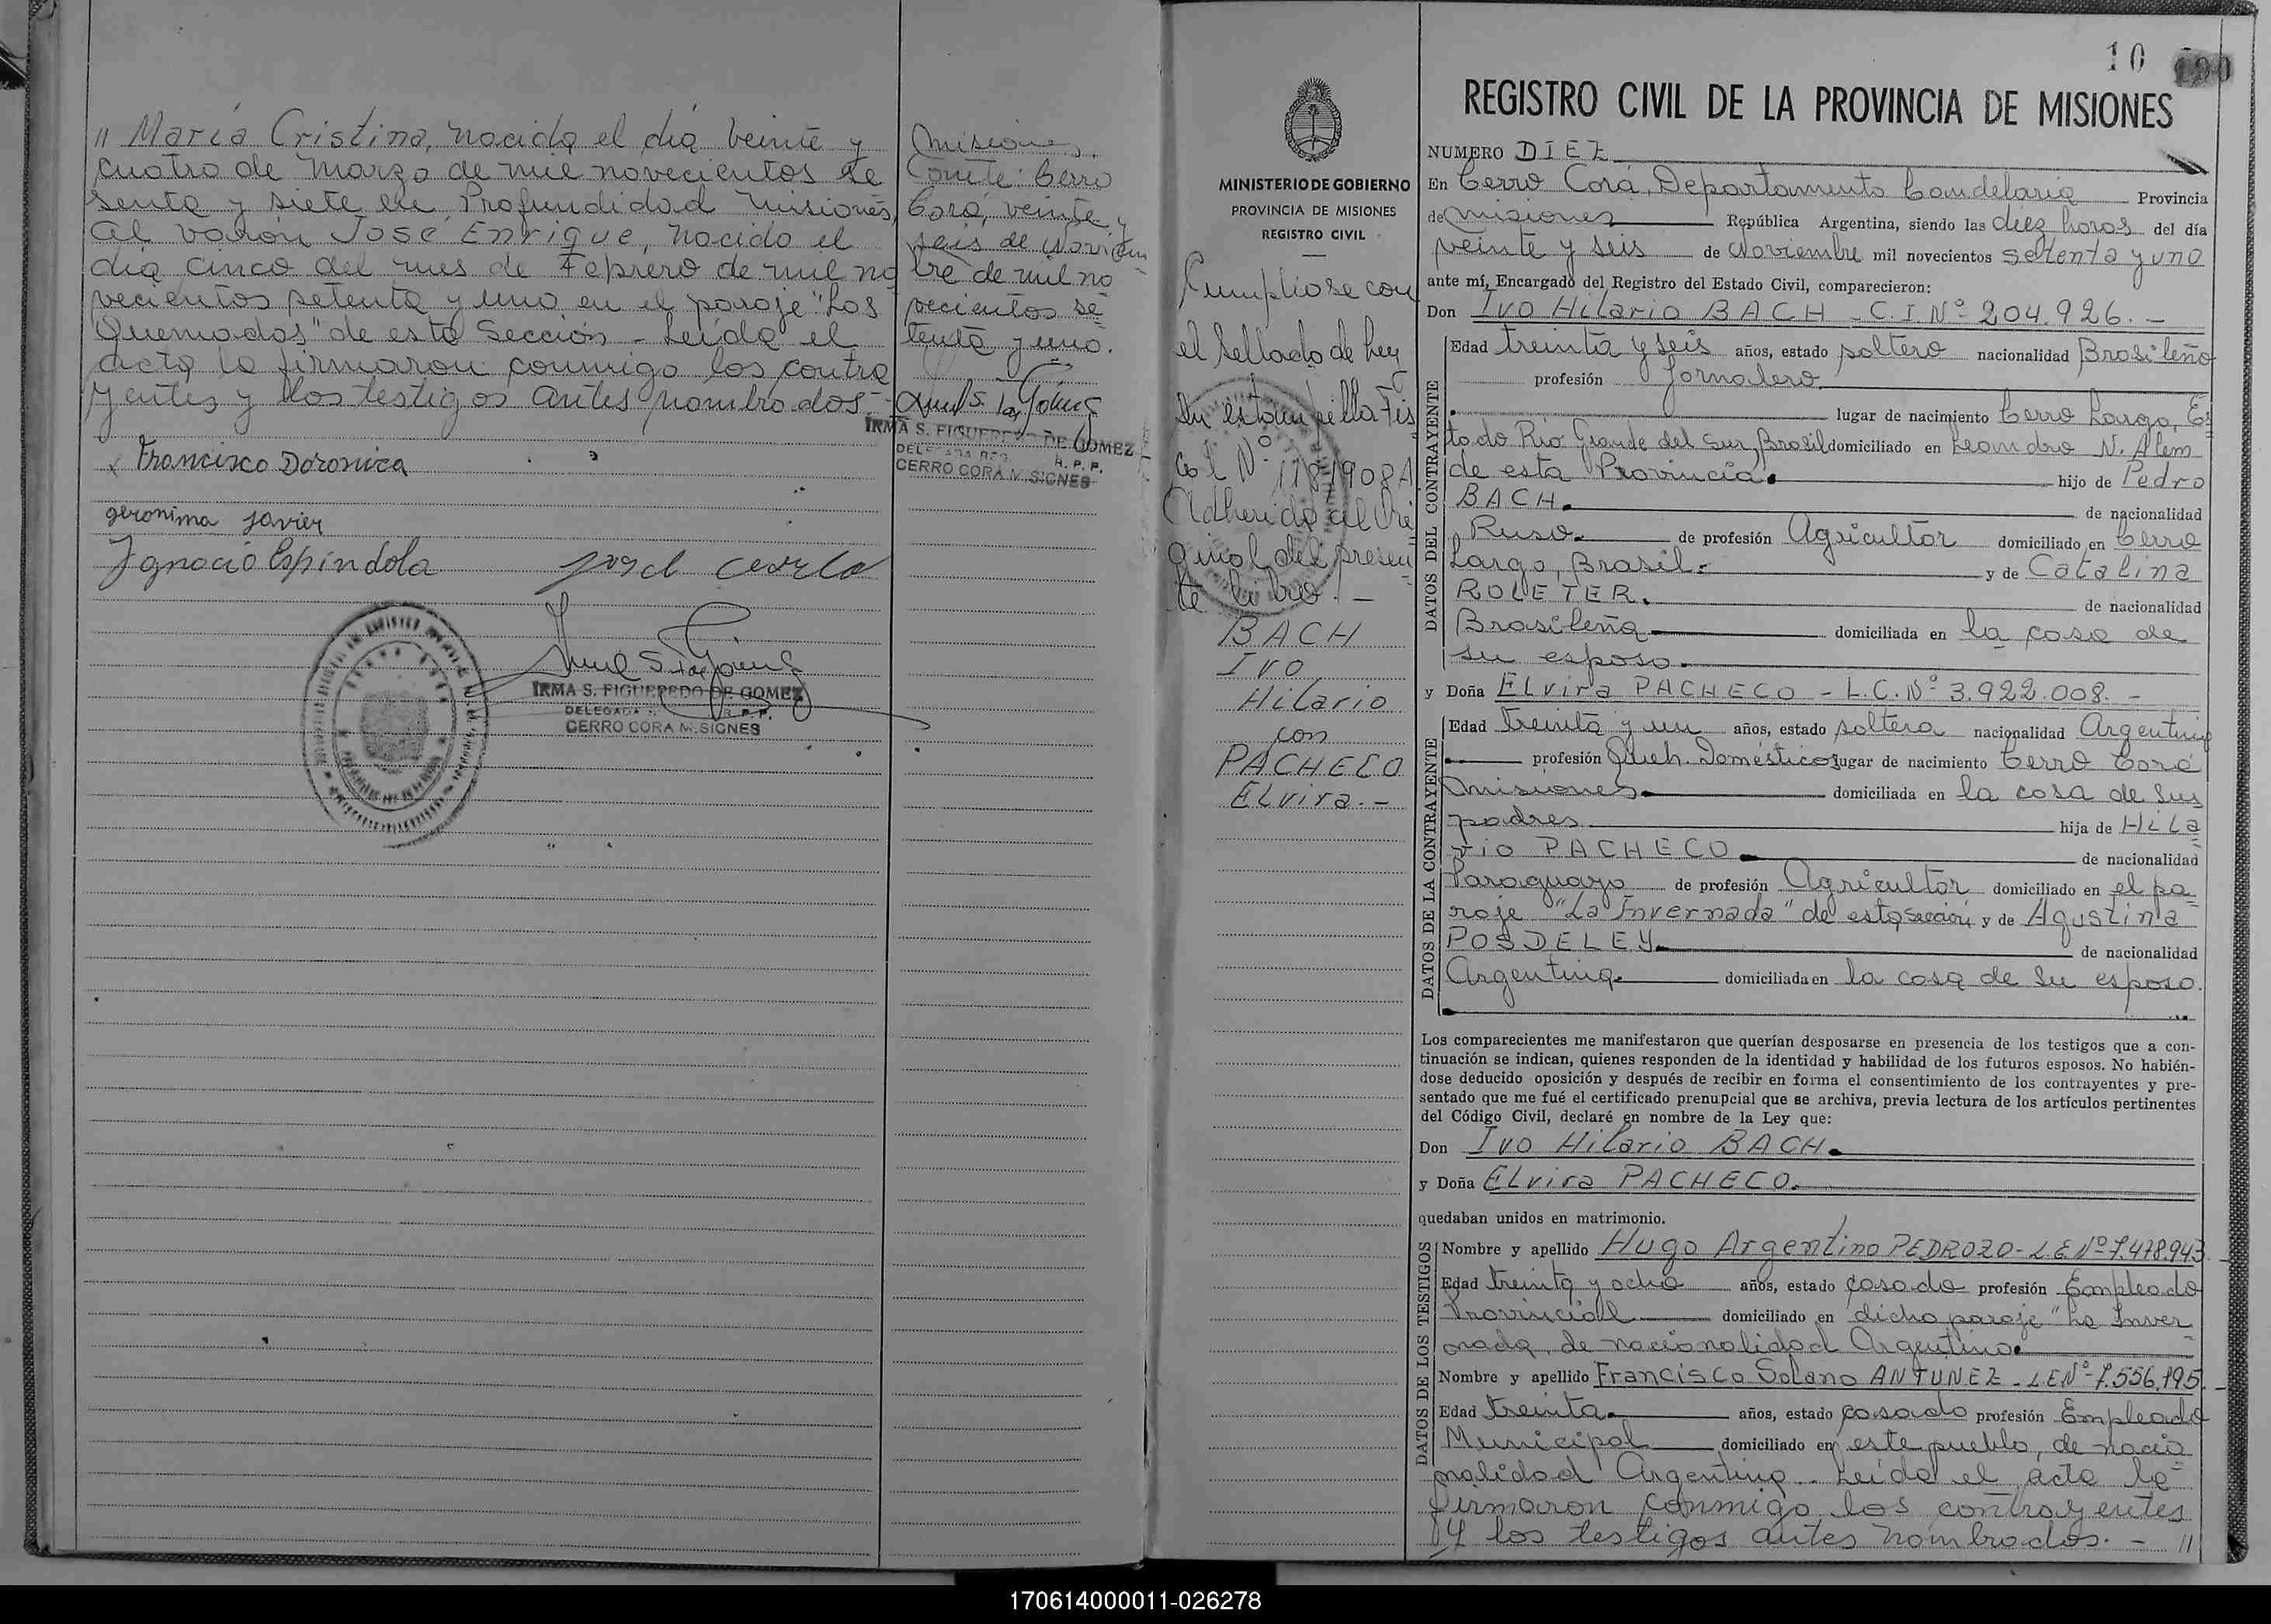 " María Cristina, nacida el día veinte y
cuatro de marzo de mil novecientos se
senta y siete en Profundidad Misiones,
al varón José Enrique, nacido el
día cinco del mes de Febrero de mil no
vecientos setenta y uno en el paraje "Los
Quemados" de esta Sección - Leída el
acta la firmaron conmigo los contra
yentes y los testigos antes nombrados.-
Francisco Doronica
geronima javier
Ignacio Espindola
IRMA S. FIGUEREDO DE GOMEZ
DELEGADA R.P.P.
CERRO CORA MISIONES
Misiones.
Conste: Cerro
Corá, veinte y
seis de Noviem
bre de mil no
vecientos se
tenta y uno.
IRMA S. FIGUEREDO DE GOMEZ
DELEGADA REG. R. P. P.
CERRO CORA MISIONES
10
MINISTERIO DE GOBIERNO
PROVINCIA DE MISIONES
REGISTRO CIVIL
Cumpliose con
el Sellado de Ley
en estampilla Fis
cal Nº 11871908A
Adherida al Ori
ginal del presen
te libro. -
BACH
Ivo
Hilario
con
PACHECO
Elvira.-
REGISTRO CIVIL DE LA PROVINCIA DE MISIONES
NUMERO DIEZ
En Cerro Corá, Departamento Candelaria Provincia
de Misiones República Argentina, siendo las diez horas del día
veinte y seis de Noviembre mil novecientos setenta y uno
ante mí, Encargado del Registro del Estado Civil, comparecieron:
Don Ivo Hilario BACH - C.I. Nº 204.926. -
DATOS DEL CONTRAYENTE
Edad treinta y seis años, estado soltero nacionalidad Brasileño
profesión Jornalero
lugar de nacimiento Cerro Largo, Es
tado Río Grande del Sur, Brasil domiciliado en Leandro N. Alem
de esta Provincia. hijo de Pedro
BACH. de nacionalidad
Ruso. de profesión Agricultor domiciliado en Cerro
Largo, Brasil. y de Catalina
ROLETER. de nacionalidad
Brasileña domiciliada en la casa de
su esposo.
y Doña Elvira PACHECO - L.C. Nº 3.922.008. -
DATOS DE LA CONTRAYENTE
Edad treinta y un años, estado soltera nacionalidad Argentina
profesión Queh. Domésticos lugar de nacimiento Cerro Corá
Misiones. domiciliada en la casa de sus
padres hija de Hila
rio PACHECO de nacionalidad
Paraguayo de profesión Agricultor domiciliado en el pa
raje "La Invernada" de esta sección y de Agustina
POSDELEY. de nacionalidad
Argentina. domiciliada en la casa de su esposo.
Los comparecientes me manifestaron que querían desposarse en presencia de los testigos que a con-
tinuación se indican, quienes responden de la identidad y habilidad de los futuros esposos. No habién-
dose deducido oposición y después de recibir en forma el consentimiento de los contrayentes y pre-
sentado que me fué el certificado prenupcial que se archiva, previa lectura de los artículos pertinentes
del Código Civil, declaré en nombre de la Ley que:
Don Ivo Hilario BACH.
y Doña Elvira PACHECO.
quedaban unidos en matrimonio.
DATOS DE LOS TESTIGOS
Nombre y apellido Hugo Argentino PEDROZO - L.E Nº 7.478.943. -
Edad treinta y ocho años, estado casado profesión Empleado
Provincial domiciliado en dicho paraje "La Inver
nada, de nacionalidad Argentino.
Nombre y apellido Francisco Solano ANTUNEZ - L.E Nº 7.556.195. -
Edad treinta. años, estado casado profesión Empleado
Municipal domiciliado en este pueblo, de nacio
nalidad Argentino. Leída el acta la
firmaron conmigo los contrayentes
y los testigos antes nombrados. - "
170614000011-026278